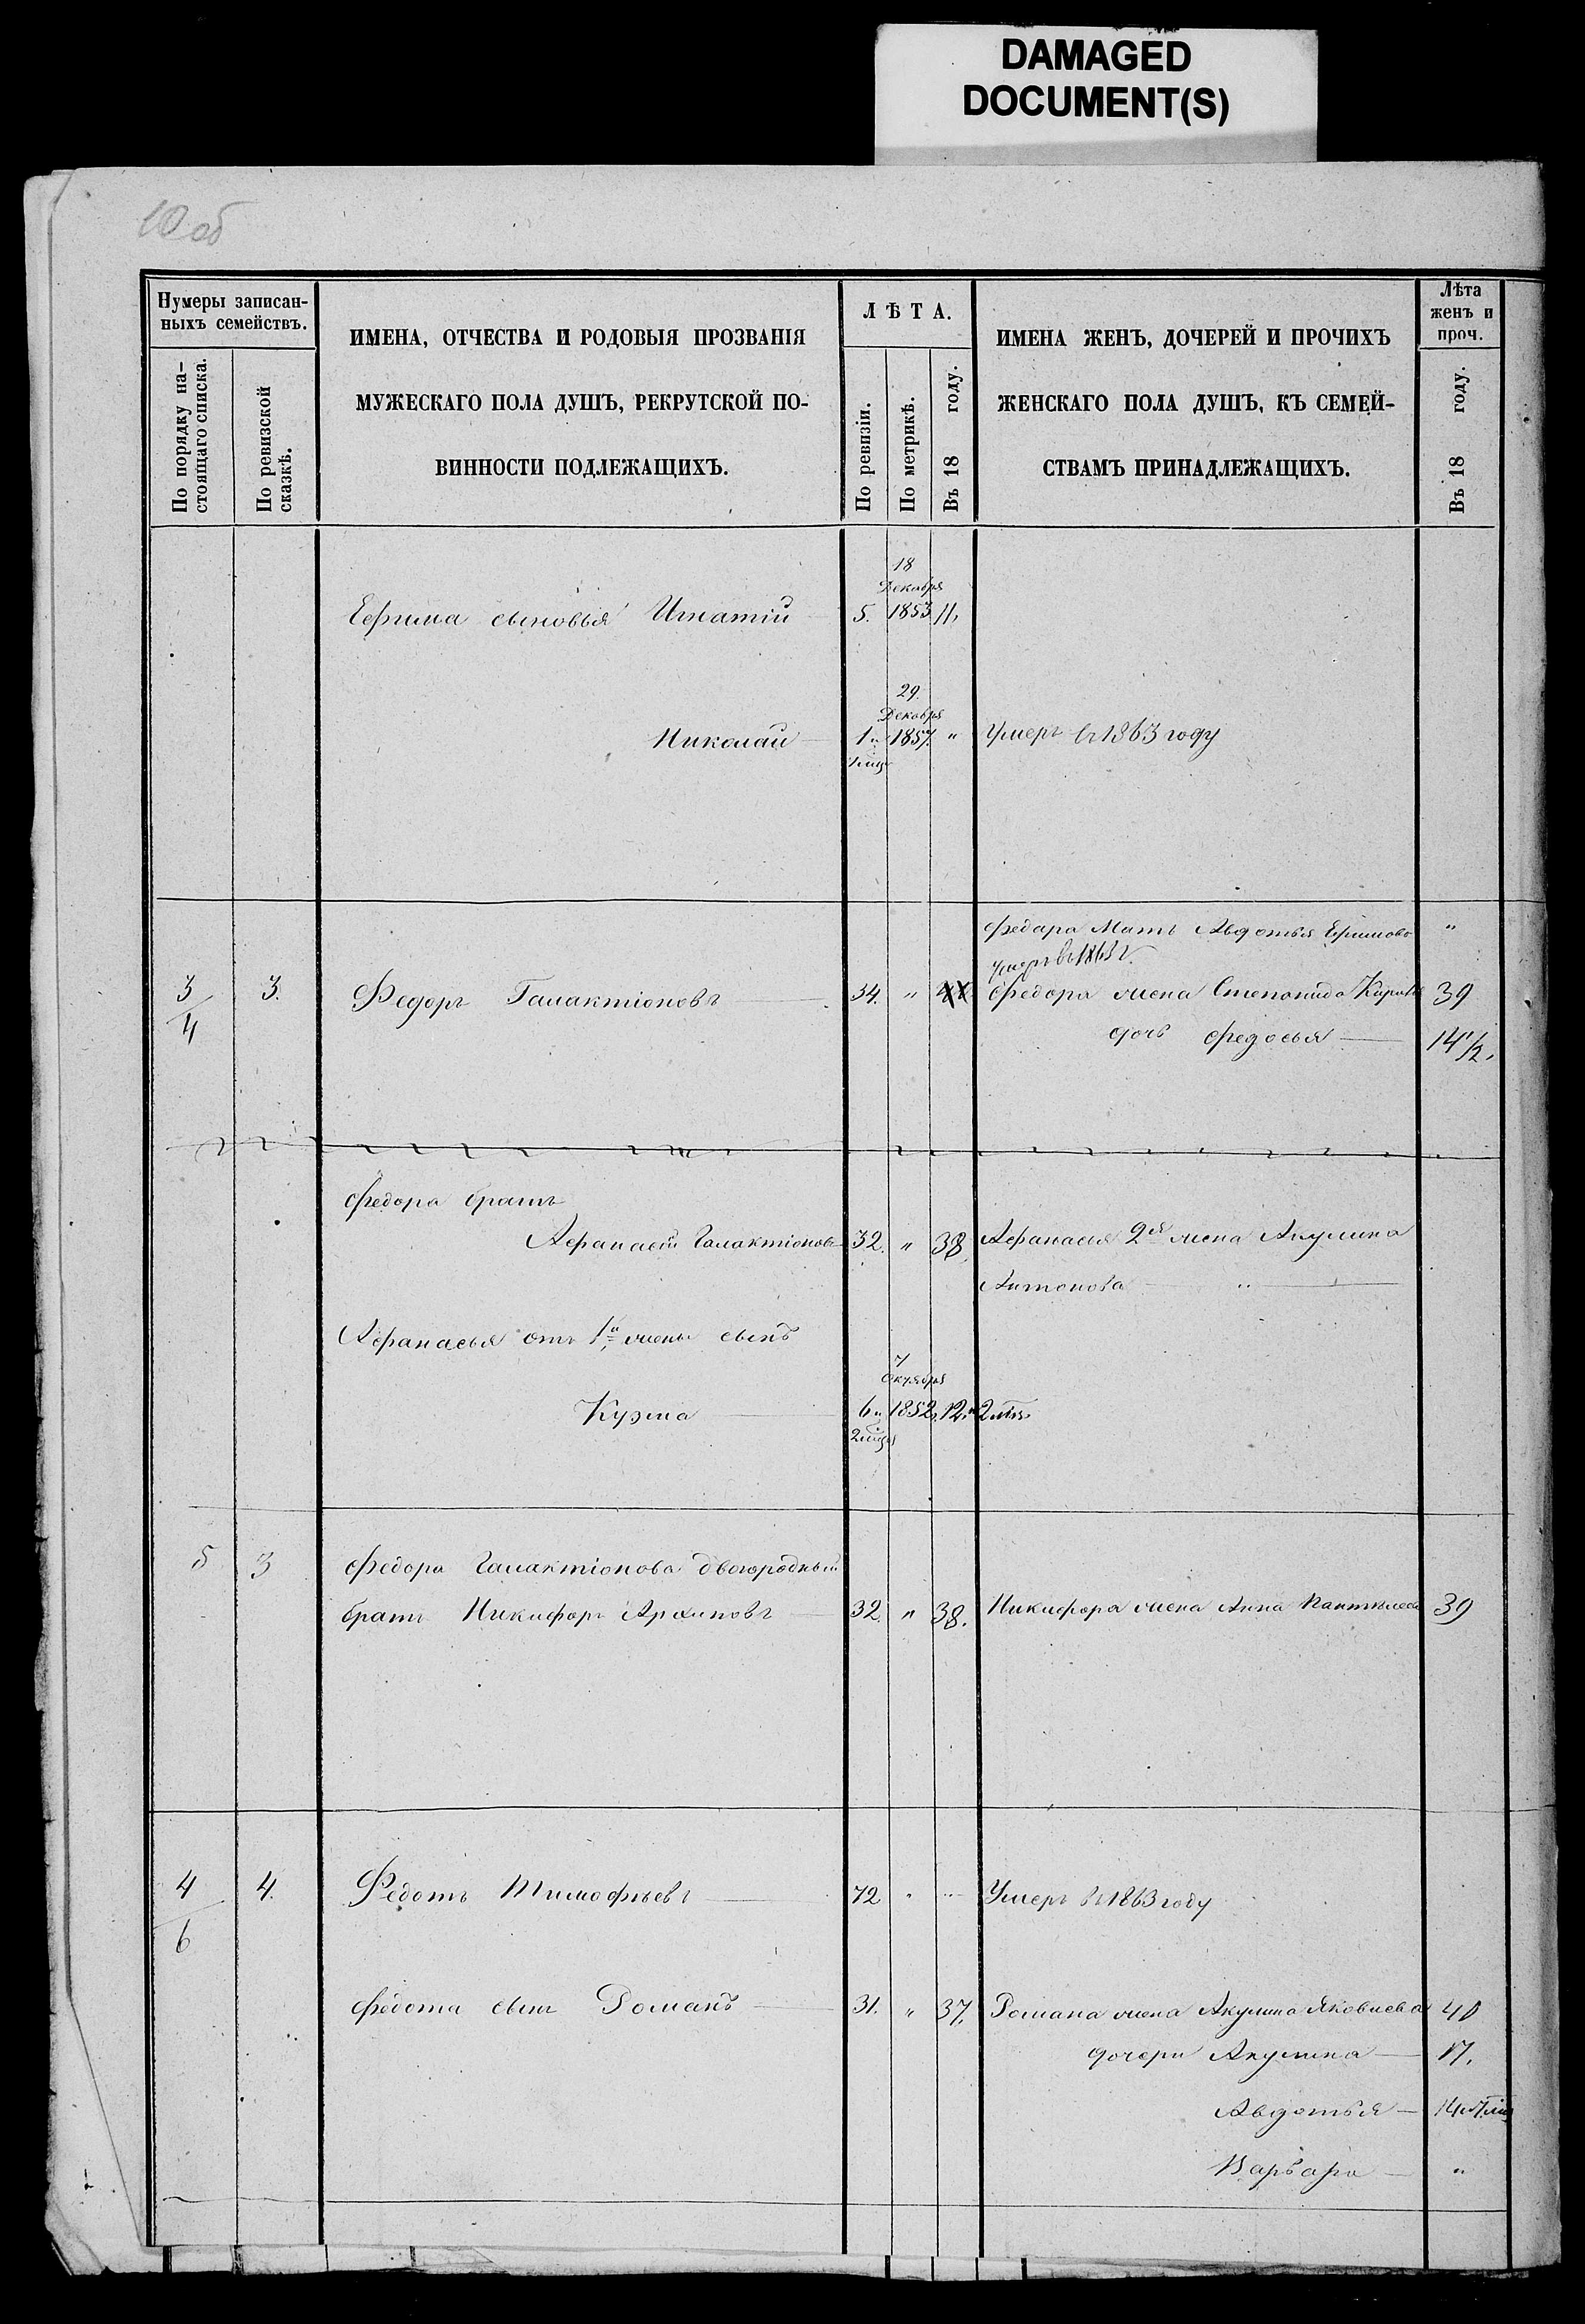 DAMAGED
DOCUMENT(S)
10 об
Нумеры записан-
ныхъ семействъ.
По порядку на-
стоящаго списка.
По ревизской
сказкѣ.
ИМЕНА, ОТЧЕСТВА И РОДОВЫЯ ПРОЗВАНІЯ
МУЖЕСКАГО ПОЛА ДУШЪ, РЕКРУТСКОЙ ПО-
ВИННОСТИ ПОДЛЕЖАЩИХЪ.
ЛѢТА.
По ревизіи.
По метрикѣ.
Въ 18 году.
ИМЕНА ЖЕНЪ, ДОЧЕРЕЙ И ПРОЧИХЪ
ЖЕНСКАГО ПОЛА ДУШЪ, КЪ СЕМЕЙ-
СТВАМЪ ПРИНАДЛЕЖАЩИХЪ.
Лѣта
женъ и
проч.
Въ 18 году.
18
Декабря
Ефима сыновья Игнатій 5. 1853 11,
29.
Декабря
Николай 1 " 1857. " Умеръ въ 1863 году
Федора Мать Авдотья Ефимова "
умерла въ 1863 г.
3 3. Федоръ Галактіоновъ 34. " Федора жена Степанида 39
4 дочь Федосья 14 1/2.
Федора братъ
Афанасій Галактіоновъ 32. " 38. Афанасья 2я жена Акулина
Антонова "
Афанасья отъ 1й жены сынъ
7
Октября
Кузма 6 " 1852. 12. " 2 мѣс.
2 мѣця
5 3 Федора Галактіонова двоюродный
братъ Никифоръ Архиповъ 32. " 38. Никифора жена Анна 39
4 4. Федотъ Тимофѣевъ 72 " " Умеръ въ 1863 году
6
Федота сынъ Романъ 31. " 37. Романа жена Акулина Яковлева 40
дочери Акулина 17.
Авдотья 14
Варвара "